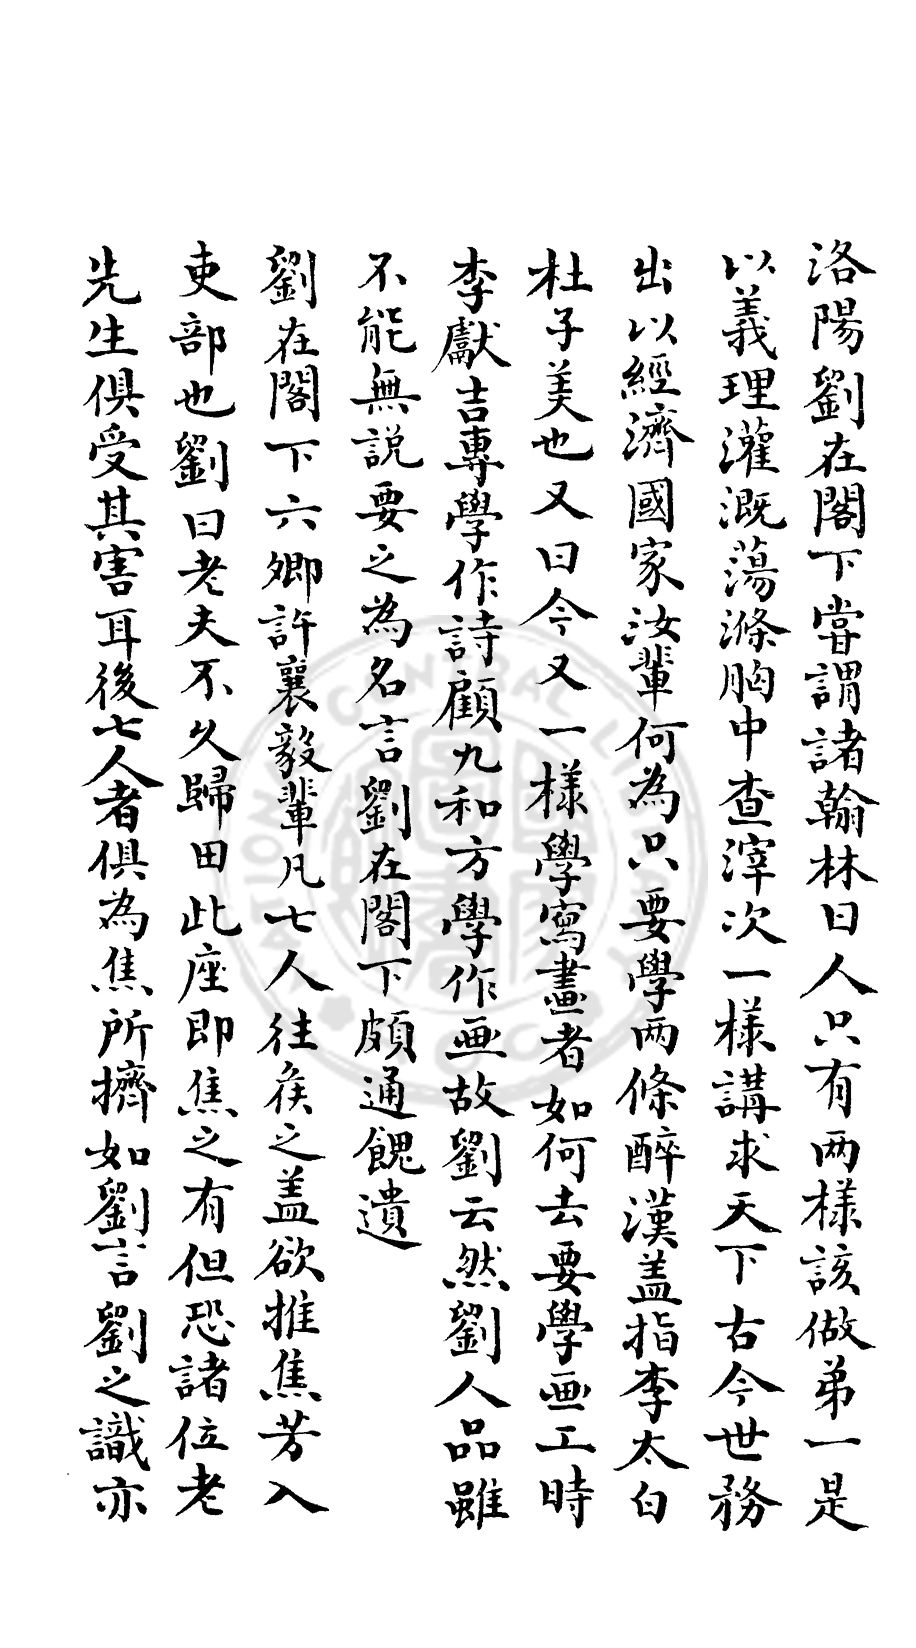 洛陽劉在閣下嘗謂諸翰林曰人只有两樣該做弟一是
以義理灌溉蕩滌胸中查滓次一樣講求天下古今世務
出以經濟國家汝輩何為只要學两條醉漢盖指李太白
杜子美也又曰今又一樣學寫畫者如何去要學画工時
李獻吉專學作詩顧九和方學作画故劉云然劉人品雖
不能無説要之為名言劉在閣下頗通餽遺
劉在閣下六卿許襄毅輩凡七人往矦之盖欲推焦芳入
吏部也劉曰老夫不久歸田此座即焦之有但恐諸位老
先生俱受其害耳後七人者俱為焦所擠如劉言劉之識亦
NATIONAL CENTRAL LIBRARY